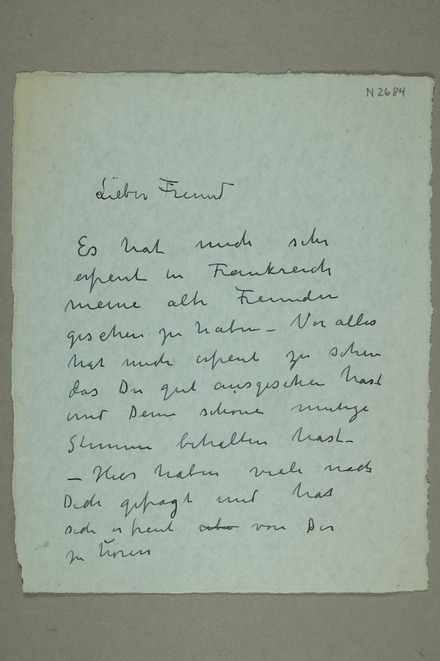 N2684
Lieber Freund
Es hat mich sehr
erfreut in Frankreich
meine alte Freunden
gesehen zu haben – Vor alles
hat mich erfreut zu sehen
das Du gut ausgesehen hast
und Deine schöne mutige
Stimme behalten hast –
– Hier haben viele nach
Dich gefragt und hat
sich erfreut von Dir
zu hören